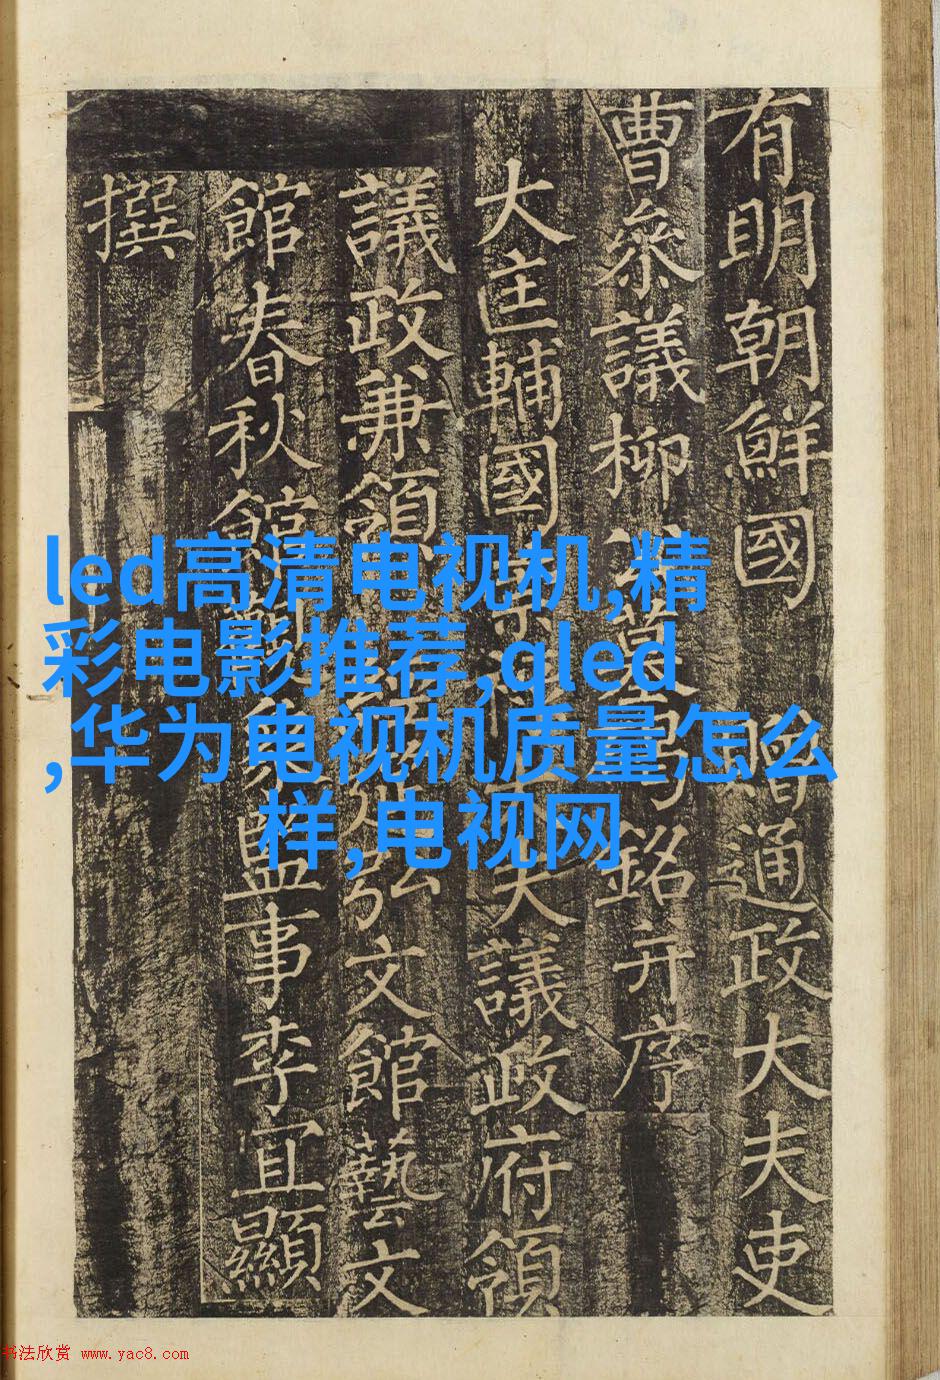 有明朝鮮國 贈通政大夫吏
曹叅議柳公墓碣銘并序
大匡輔國崇祿大夫議政府領
議政兼領 經筵弘文館藝文
館春秋館觀象監事李宜顯
撰
led高清电视机,精
彩电影推荐,qled
,华为电视机质量怎么
样,电视网
书法欣赏 www.yac8.com